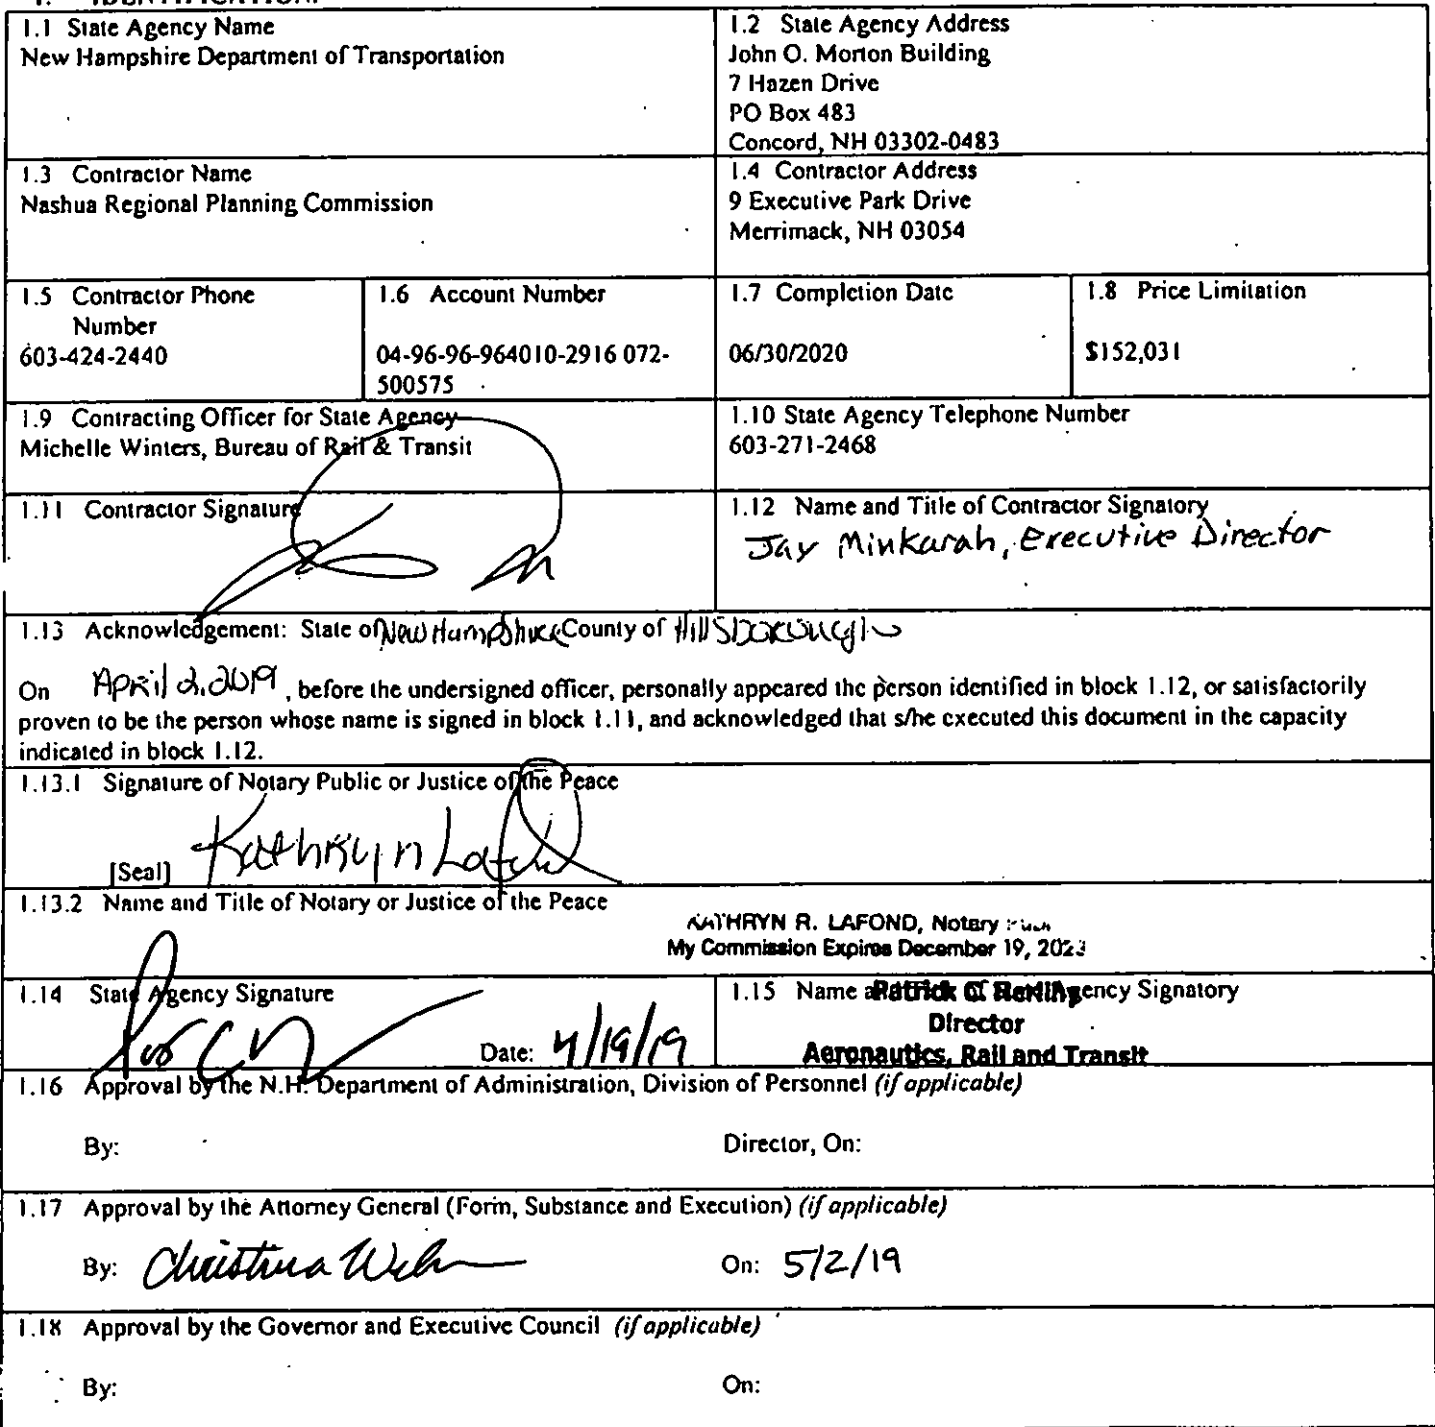 1. IDENTIFICATION.
1.1 State Agency Name
New Hampshire Department of Transportation
1.2 State Agency Address
John O. Morton Building
7 Hazen Drive
PO Box 483
Concord, NH 03302-0483
1.3 Contractor Name
Nashua Regional Planning Commission
1.4 Contractor Address
9 Executive Park Drive
Merrimack, NH 03054
1.5 Contractor Phone
Number
603-424-2440
1.6 Account Number
04-96-96-964010-2916 072-
500575
1.7 Completion Date
06/30/2020
1.8 Price Limitation
$152,031
1.9 Contracting Officer for State Agency
Michelle Winters, Bureau of Rail & Transit
1.10 State Agency Telephone Number
603-271-2468
1.11 Contractor Signature
1.12 Name and Title of Contractor Signatory
Jay Minkarah, Executive Director
1.13 Acknowledgement: State of New Hampshire County of Hillsborough
On April 2, 2019, before the undersigned officer, personally appeared the person identified in block 1.12, or satisfactorily
proven to be the person whose name is signed in block 1.11, and acknowledged that s/he executed this document in the capacity
indicated in block 1.12.
1.13.1 Signature of Notary Public or Justice of the Peace
[Seal] Kathryn Lafond
1.13.2 Name and Title of Notary or Justice of the Peace
KATHRYN R. LAFOND, Notary
My Commission Expires December 19, 2023
1.14 State Agency Signature
Date: 4/19/19
1.15 Name Agency Signatory
Patrick C. Herlihy
Director
Aeronautics, Rail and Transit
1.16 Approval by the N.H. Department of Administration, Division of Personnel (if applicable)
By: Director, On:
1.17 Approval by the Attorney General (Form, Substance and Execution) (if applicable)
By: Christina On: 5/2/19
1.18 Approval by the Governor and Executive Council (if applicable)
By: On: